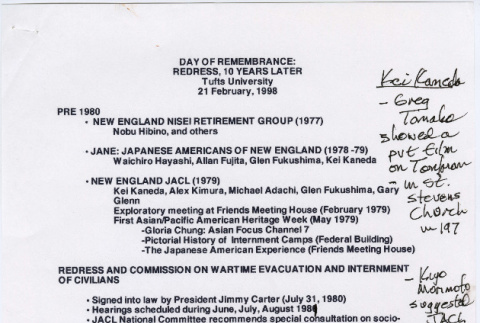 DAY OF REMEMBRANCE:
REDRESS, 10 YEARS LATER
Tufts University
21 February, 1998
PRE 1980
• NEW ENGLAND NISEI RETIREMENT GROUP (1977)
Nobu Hibino, and others
• JANE: JAPANESE AMERICANS OF NEW ENGLAND (1978 -79)
Waichiro Hayashi, Allan Fujita, Glen Fukushima, Kei Kaneda
• NEW ENGLAND JACL (1979)
Kei Kaneda, Alex Kimura, Michael Adachi, Glen Fukushima, Gary
Glenn
Exploratory meeting at Friends Meeting House (February 1979)
First Asian/Pacific American Heritage Week (May 1979)
-Gloria Chung: Asian Focus Channel 7
-Pictorial History of Internment Camps (Federal Building)
-The Japanese American Experience (Friends Meeting House)
REDRESS AND COMMISSION ON WARTIME EVACUATION AND INTERNMENT
OF CIVILIANS
• Signed into law by President Jimmy Carter (July 31, 1980)
• Hearings scheduled during June, July, August 1981
• JACL National Committee recommends special consultation on socio-
Kei Kaneda
- Greg
Tanaka
showed a
pvt film
on
- in St.
Stevens
Church
in 197
- Kiyo
Morimoto
suggested
JACL